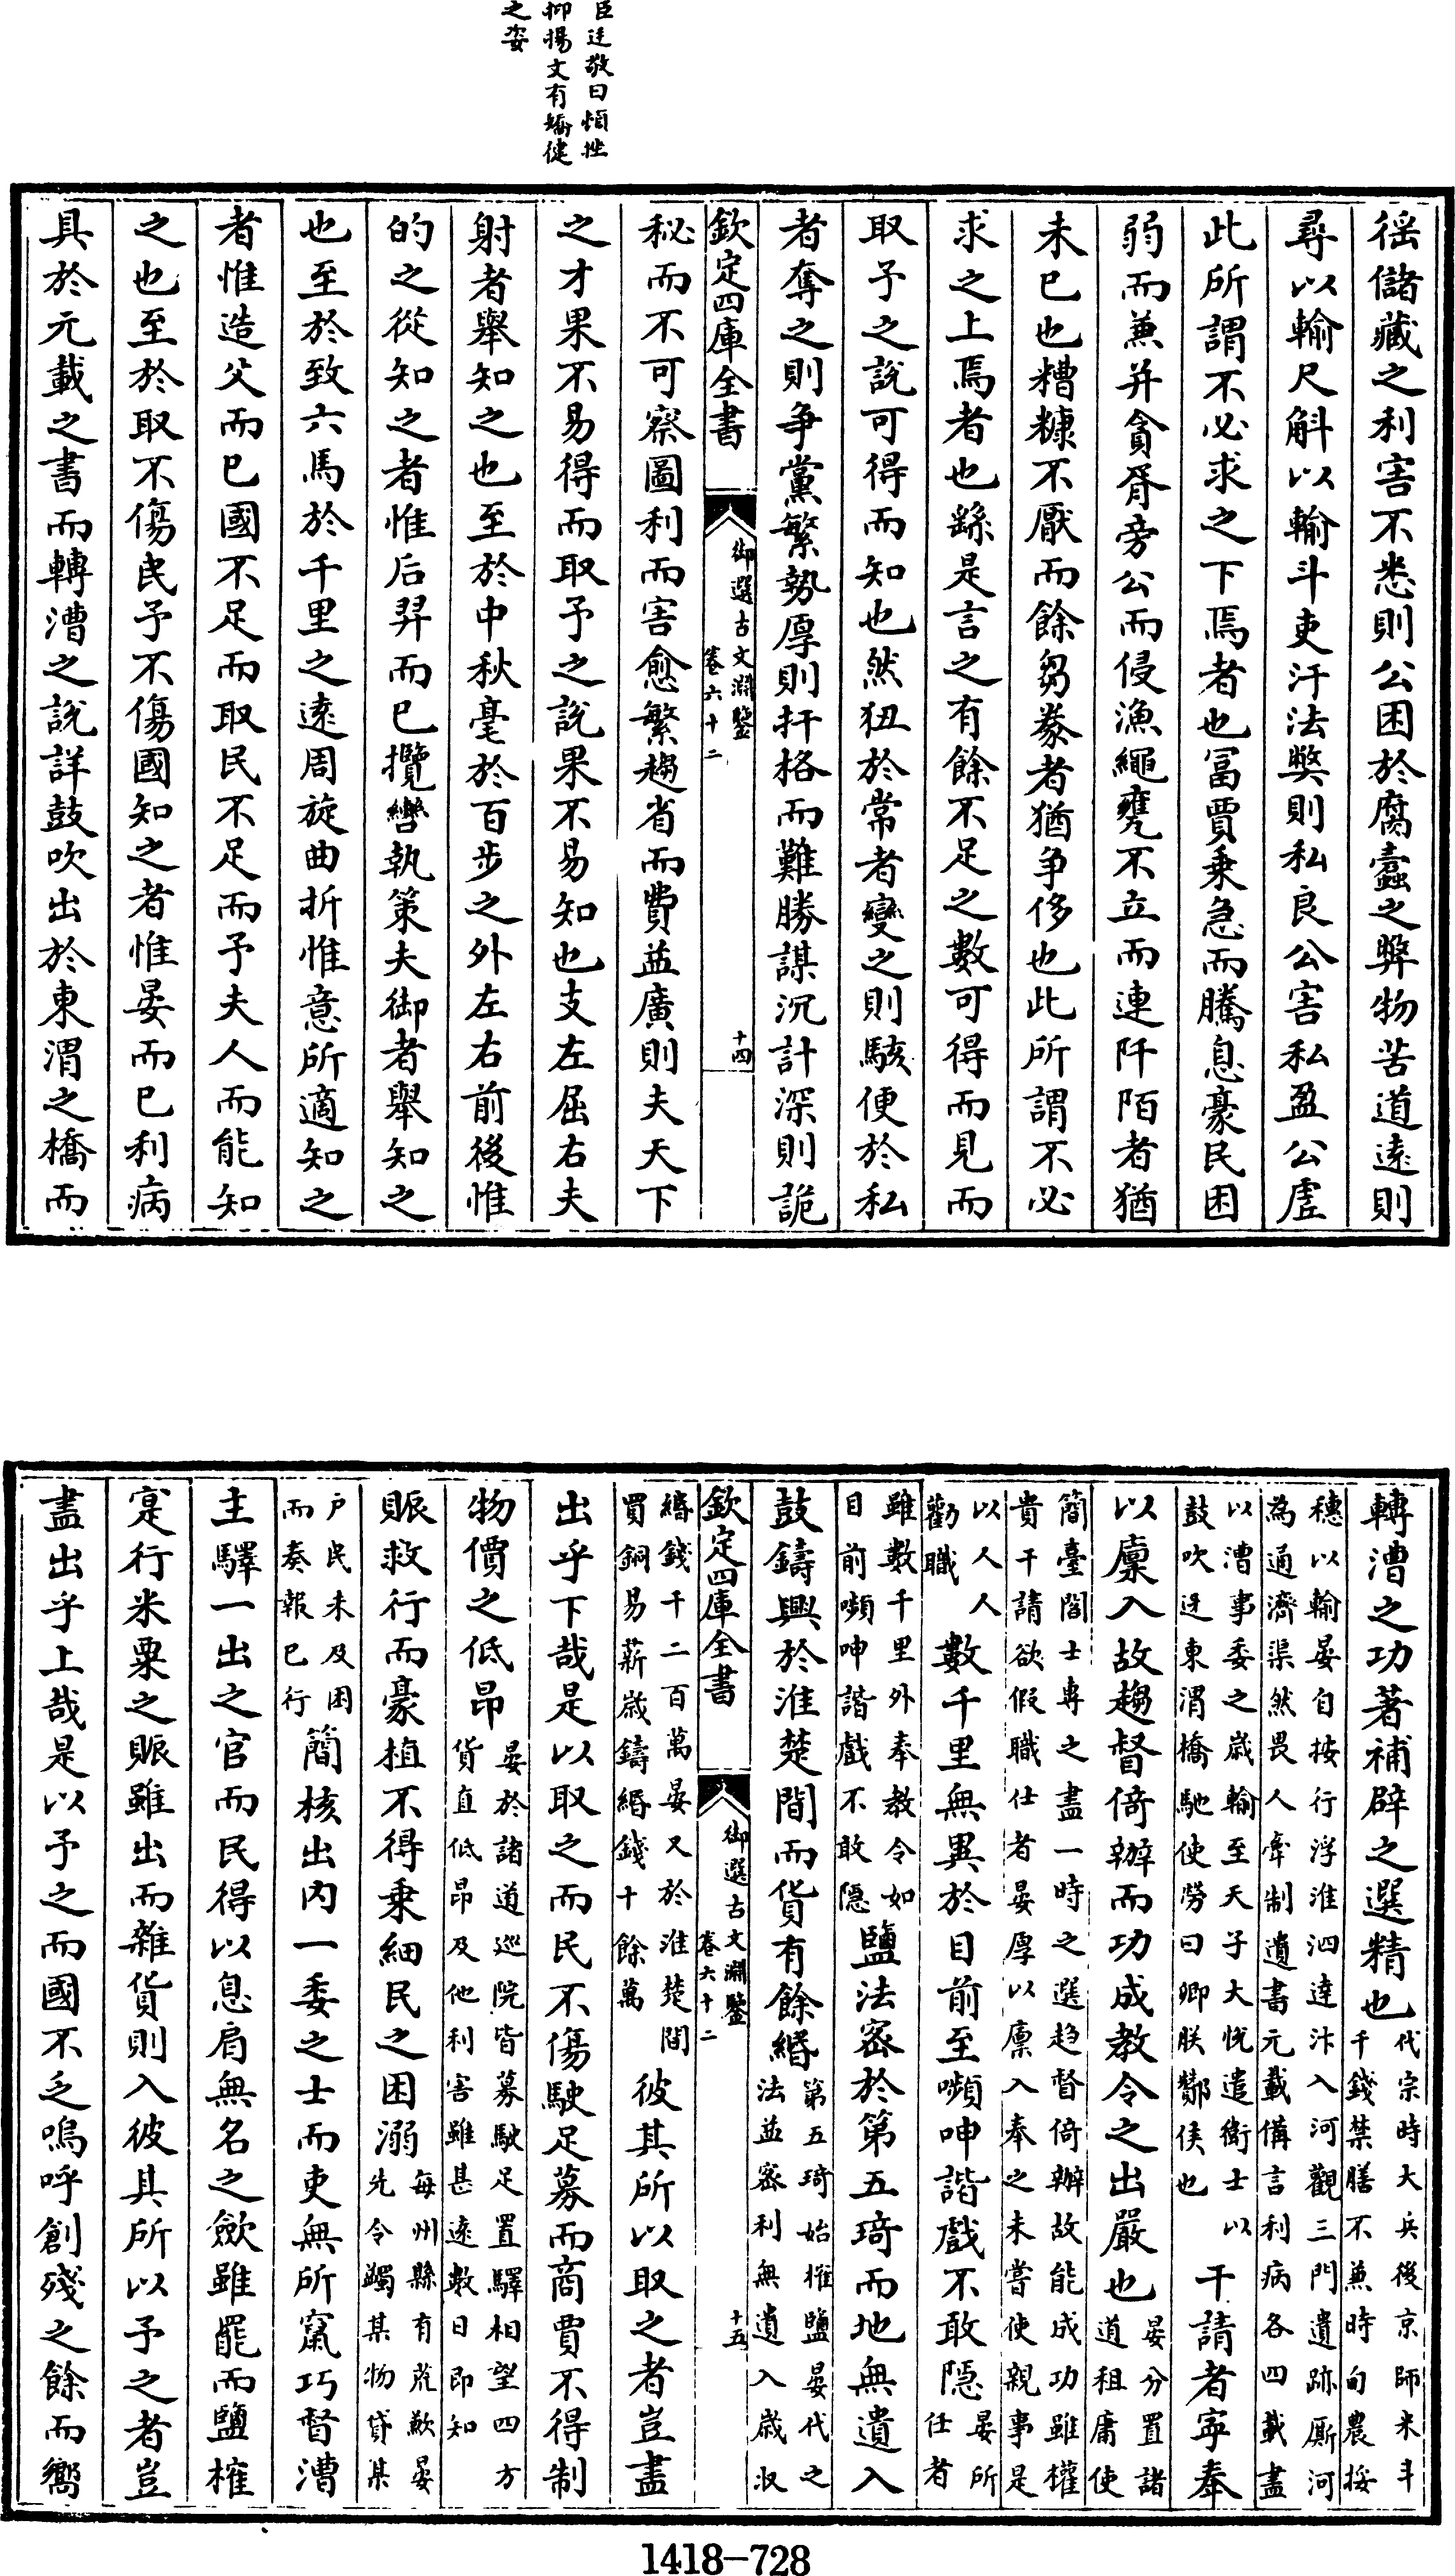 臣廷敬曰頓挫
抑揚文有矯健
之姿
徭儲藏之利害不悉則公困於腐蠹之弊物苦道逺則
尋以輸尺斛以輸斗吏汗法獘則私良公害私盈公虚
此所謂不必求之下焉者也冨賈乗急而騰息豪民困
弱而兼并貪胥旁公而侵漁繩甕不立而連阡陌者猶
未已也糟糠不厭而餘芻豢者猶争侈也此所謂不必
求之上焉者也繇是言之有餘不足之數可得而見而
取予之說可得而知也然狃於常者變之則駭便於私
者奪之則争黨繁勢厚則扞格而難勝謀沉計深則詭
欽定四庫全書
御選古文淵鑒
卷六十二
十四
秘而不可察圖利而害愈繁趨省而費益廣則夫天下
之才果不易得而取予之說果不易知也支左屈右夫
射者舉知之也至於中秋毫於百步之外左右前後惟
的之從知之者惟后羿而已攬轡執策夫御者舉知之
也至於致六馬於千里之逺周旋曲折惟意所適知之
者惟造父而已國不足而取民不足而予夫人而能知
之也至於取不傷民予不傷國知之者惟晏而已利病
具於元載之書而轉漕之說詳鼓吹出於東渭之橋而
轉漕之功著補辟之選精也
代宗時大兵後京師米斗
千錢禁膳不兼時甸農挼
穗以輸晏自按行浮淮泗達汴入河觀三門遺跡厮河
為通濟渠然畏人牽制遺書元載備言利病各四載盡
以漕事委之歳輸至天子大恱遣衛士以
鼓吹迓東渭橋馳使勞曰卿朕酇侯也
干請者寕奉
以廩入故趨督倚辦而功成教令之出嚴也
晏分置諸
道租庸使
簡臺閣士専之盡一時之選趋督倚辦故能成功雖權
貴干請欲假職仕者晏厚以廪入奉之未嘗使親事是
以人人
勸職
數千里無異於目前至嚬呻諧戲不敢隠
晏所
任者
雖數千里外奉教令如
目前嚬呻諧戲不敢隠
鹽法宻於第五琦而地無遺入
鼓鑄興於淮楚間而貨有餘緡
第五琦始㩁鹽晏代之
法益宻利無遺入歳收
欽定四庫全書
御選古文淵鑒
卷六十二
十五
緡錢千二百萬晏又於淮楚間
買銅易薪歳鑄緡錢十餘萬
彼其所以取之者豈盡
出乎下哉是以取之而民不傷駛足募而商賈不得制
物價之低昂
晏於諸道巡院皆募駛足置驛相望四方
貨直低昂及他利害雖甚逺數日即知
賑救行而豪植不得乗細民之困溺
每州縣有荒歉晏
先令蠲某物貸某
户民未及困
而奏報已行
簡核出内一委之士而吏無所竄巧督漕
主驛一出之官而民得以息肩無名之歛雖罷而鹽㩁
寔行米粟之賑雖出而雜貨則入彼其所以予之者豈
盡出乎上哉是以予之而國不乏嗚呼創殘之餘而嚮
1418-728